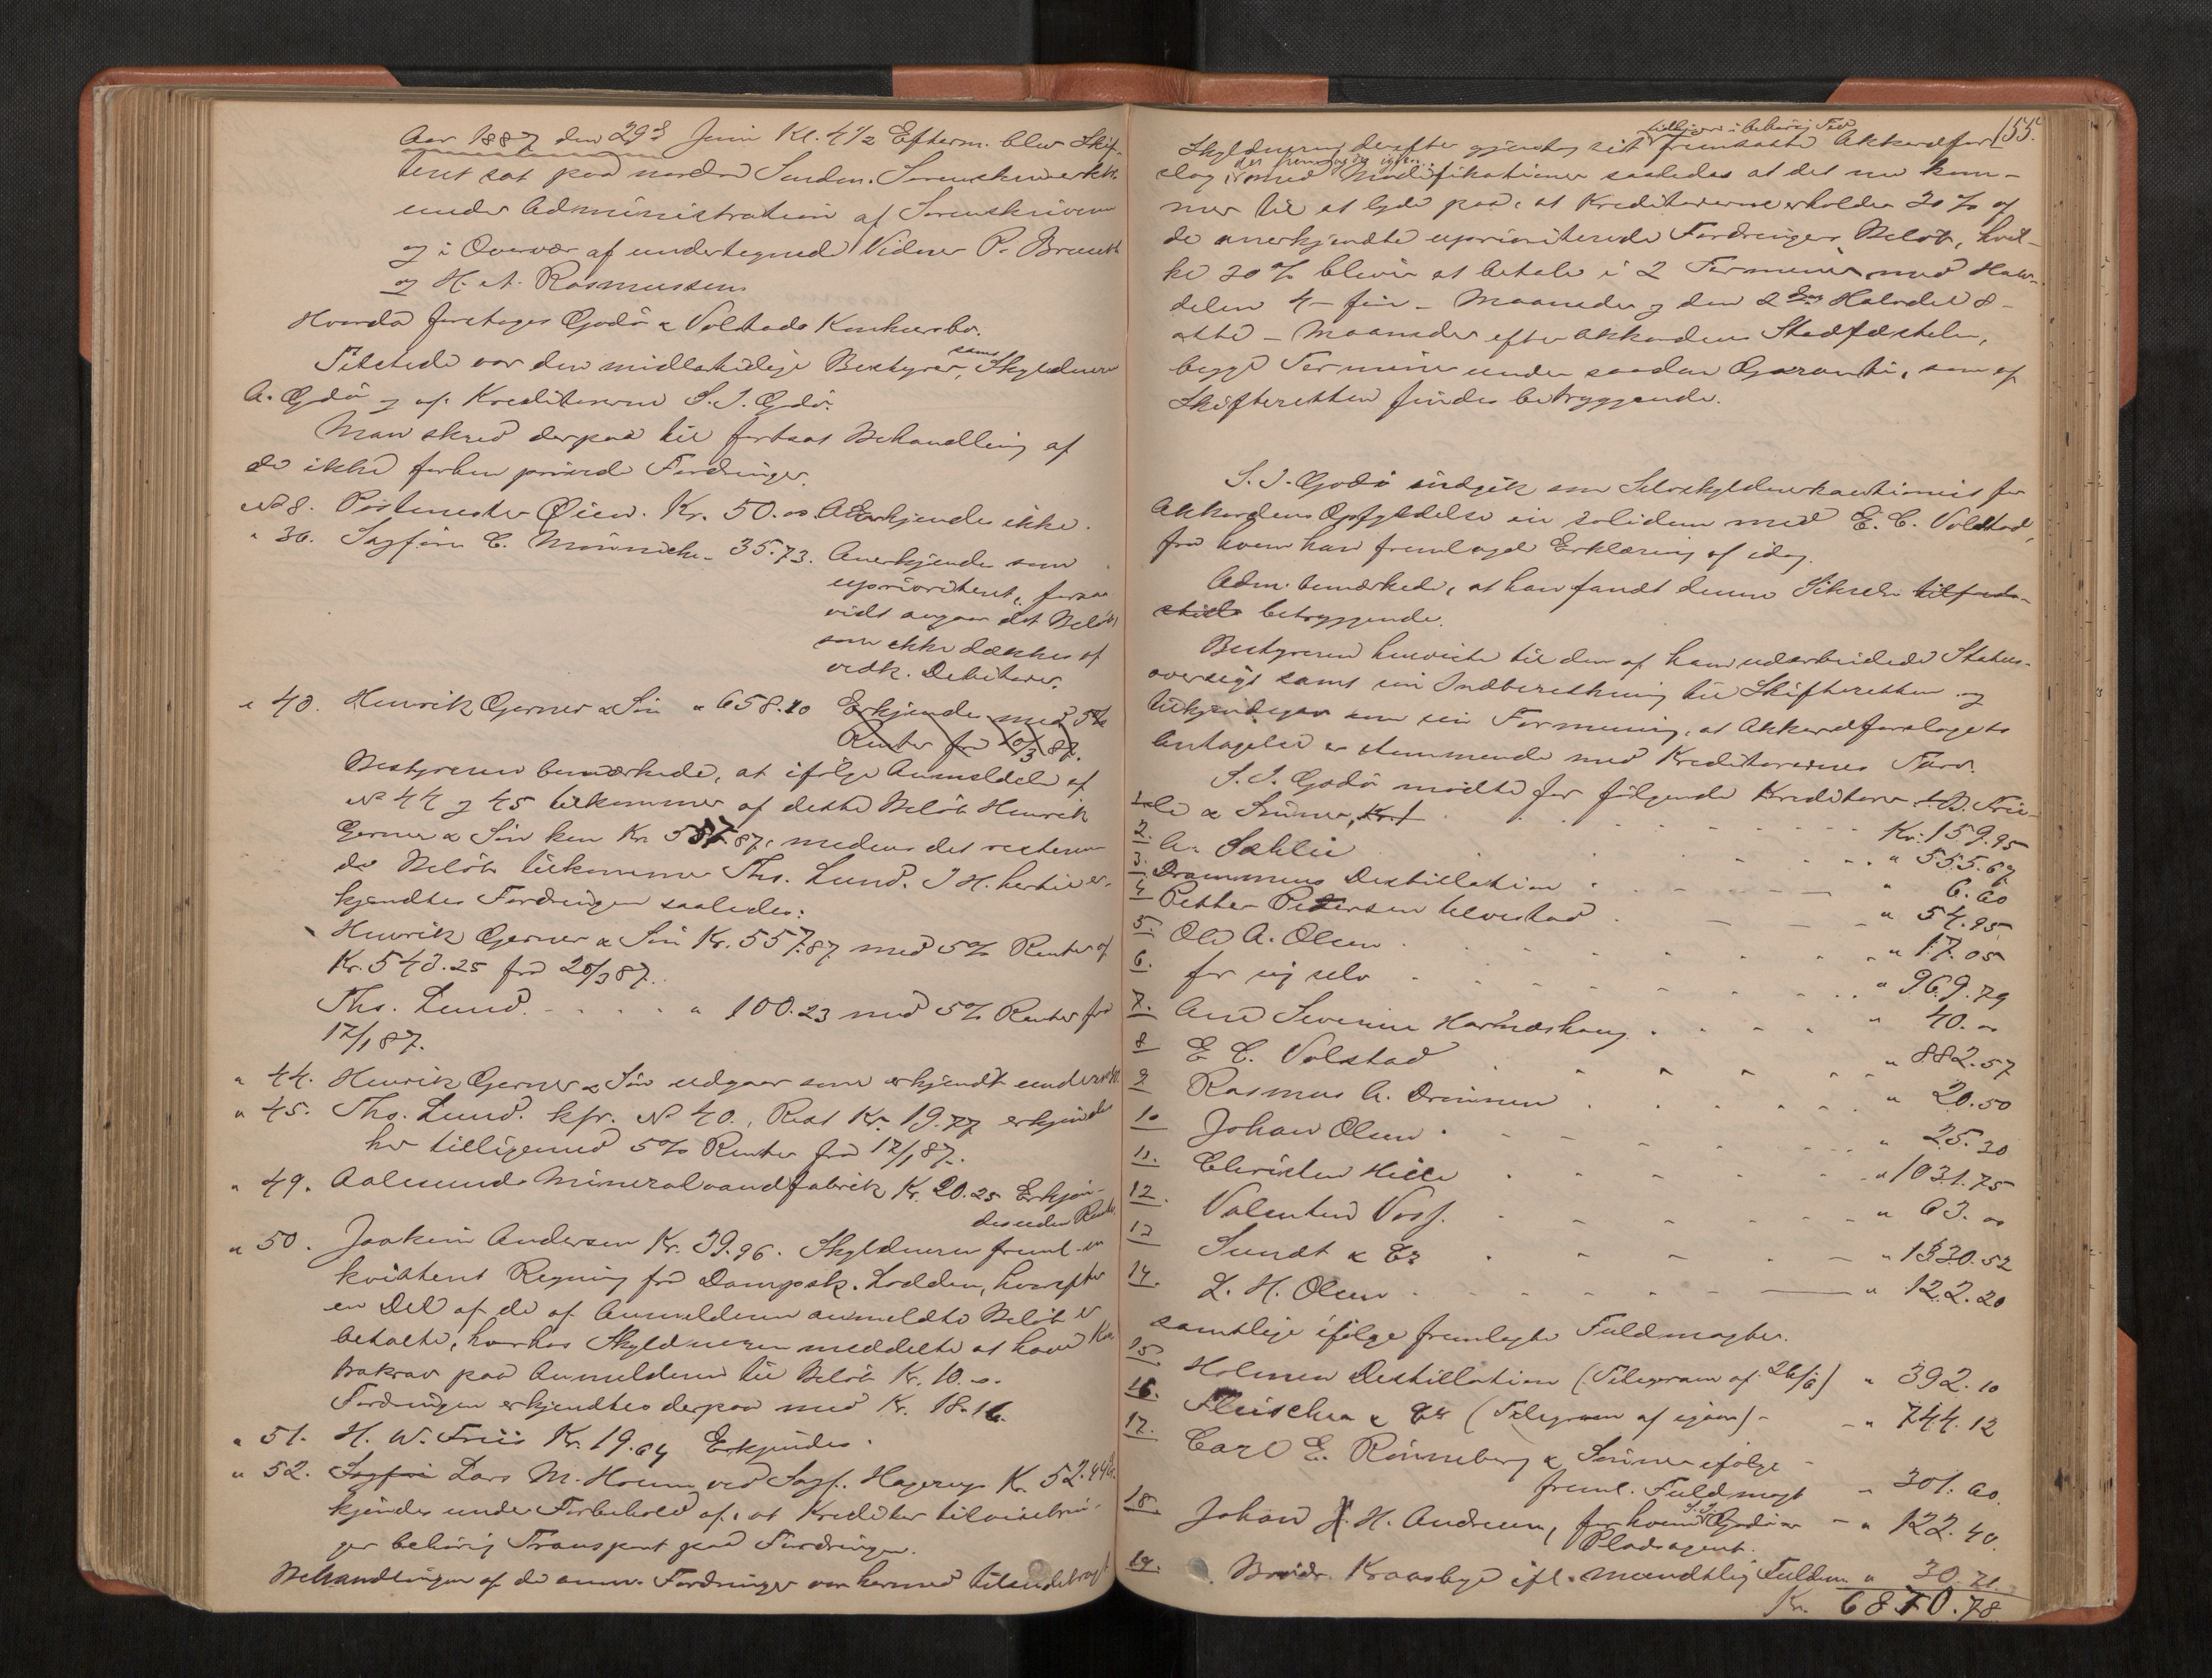 Aar 1887 den 29de Juni Kl. 4 1/2 Efterm. blev Skif-
teret sat paa nordre Søndm. Sorenskriverkt.
under Administration af Sorenskriveren
og i Overvær af undertegnede Vidner P. Brandt
og H. A. Rasmussen
Hvorda foretoges Godø & Volstads Konkursbo.
Tilstede var den midlertidige Bestyrer, samt Skyldneren
A. Godø og af Kreditorerne S. I. Godø.
Man skred derpaa til fortsat Behandling af
de ikke forhen prøvede Fordringer.
No 8. Postmester Øien. Kr. 50.00 Erkjendes ikke.
" 36. Sagfører C. Mønniche - 35.73. Anerkjendes som
uprioriteret, forsaa-
vidt angaar det Beløb,
som ikke dækkes af
vedk. Debitorer.
" 40. Henrik Gerner & Søn " 658.10 Erkjendes med 5%
Renter fra 20/3 87.
Bestyreren bemærkede, at ifølge Anmeldelse af
No 44 og 45 tilkommer af dette Beløb Henrik
Gerner & Søn kun Kr. 557.87, medens det resteren-
de Beløb tilkommer Ths. Lund. I H. hertil er-
kjendtes Fordringen saaledes:
Henrik Gerner & Søn Kr. 557.87 med 5% Renter af
Kr. 543.25 fra 20/3 87.
Ths. Lund. - - - " 100.23 med 5% Renter fra
17/1 87.
" 44. Henrik Gerner & Søn udgaar som erkjendt under No 40.
" 45. Ths. Lund. kfr. No 40., Rest Kr. 19.77 erkjendes
her tilligemed 5% Renter fra 17/1 87.
" 49. Aalesunds Mineralvandfabrik Kr. 20.25 Erkjen-
des uden Rente.
" 50. Joakim Andersen Kr. 39.96. Skyldneren freml. en
kvitteret Regning fra Dampsk. Lodden, hvorefter
en Del af de af Anmelderen anmeldte Beløb er
betalte, hvorhos Skyldneren meddelte at have Kon-
trakrav paa Anmelderen til Beløb Kr. 10.00.
Fordringen erkjendtes derpaa med Kr. 18.16.
" 51. H. W. Friis Kr. 19.64 Erkjendes.
" 52. Sagfører Lars M. Hoem ved Sagf. Hagerup Kr. 52.44 Er-
kjendes under Forbehold af, at Kreditor tilveiebrin-
ger behørig Transport paa Fordringen.
Behandlingen af de anm. Fordringer var hermed tilendebragt
155.
Skyldneren derefter gjentog sit tidligere i behørig Tid fremsatte Akkordfor-
slag, med Modifikationer saaledes at det nu kom-
mer til at lyde paa, at Kreditorerne erholder 30% af
de anerkjendte uprioriterede Fordringers Beløb, hvil-
ke 30% bliver at betale i 2 Terminer med Halv-
delen 4 - fire - Maaneder og den 2den Halvdel 8 -
otte - Maaneder efter Akkordens Stadfæstelse,
begge Terminer under saadan Garanti, som af
Skifteretten findes betryggende.
S. I. Godø indgik som Selvskyldnerkautionist for
Akkordens Opfyldelse in solidum med E. C. Volstad,
fra hvem han fremlagde Erklæring af idag.
Adm. bemærkede, at han fandt denne Sikkerhed tilfreds-
stille betryggende.
Bestyreren henviste til den af ham udarbeidede Status-
oversigt samt sin Indberetning til Skifteretten og
tilkjendegav som sin Formening, at Akkordforslagets
Antagelse er stemmende med Kreditorernes Tarv.
S. I. Godø mødte for følgende Kreditorer
& Sønner, Kr. 159.95
2. A. Sahlie " 555.67
3. Drammens Destillation " 6.60
4. Petter Petersen Ulvestad " 54.95
5. Ole A. Olsen " 17.05
6. for sig selv " 969.79
7. Ane Severine Harnæshaug " 40.00
8 E. C. Volstad " 882.57
9 Rasmus A. Drønnen " 20.50
10 Johan Olsen " 25.30
11. Christen Hille " 1031.75
12. Valentin Voss. " 63.00
13 Sundt & Co " 1330.52
14. L. H. Olsen " 122.20
samtlige ifølge fremlagte Fuldmagter.
15. Holmen Destillation (Telegram af 26/6) " 392.10
16. Fleischer & Co (Telegram af igaar) - " 744.12
17. Carl E. Rønneberg & Sønner ifølge
freml. Fuldmagt " 301.60.
18. Johan H. Andresen, for hvem S. I. Godø er " 122.40.
Pladsagent.
19. Brødr. Kraasbye ifl. mundtlig Fuldm. " 30.71.
Kr. 6870.78